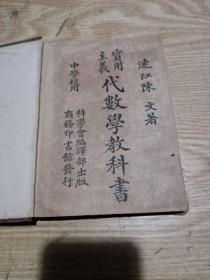 連江陳文著
實用主義
代數學教科書
中學校用
科學會編譯部出版
商務印書館發行